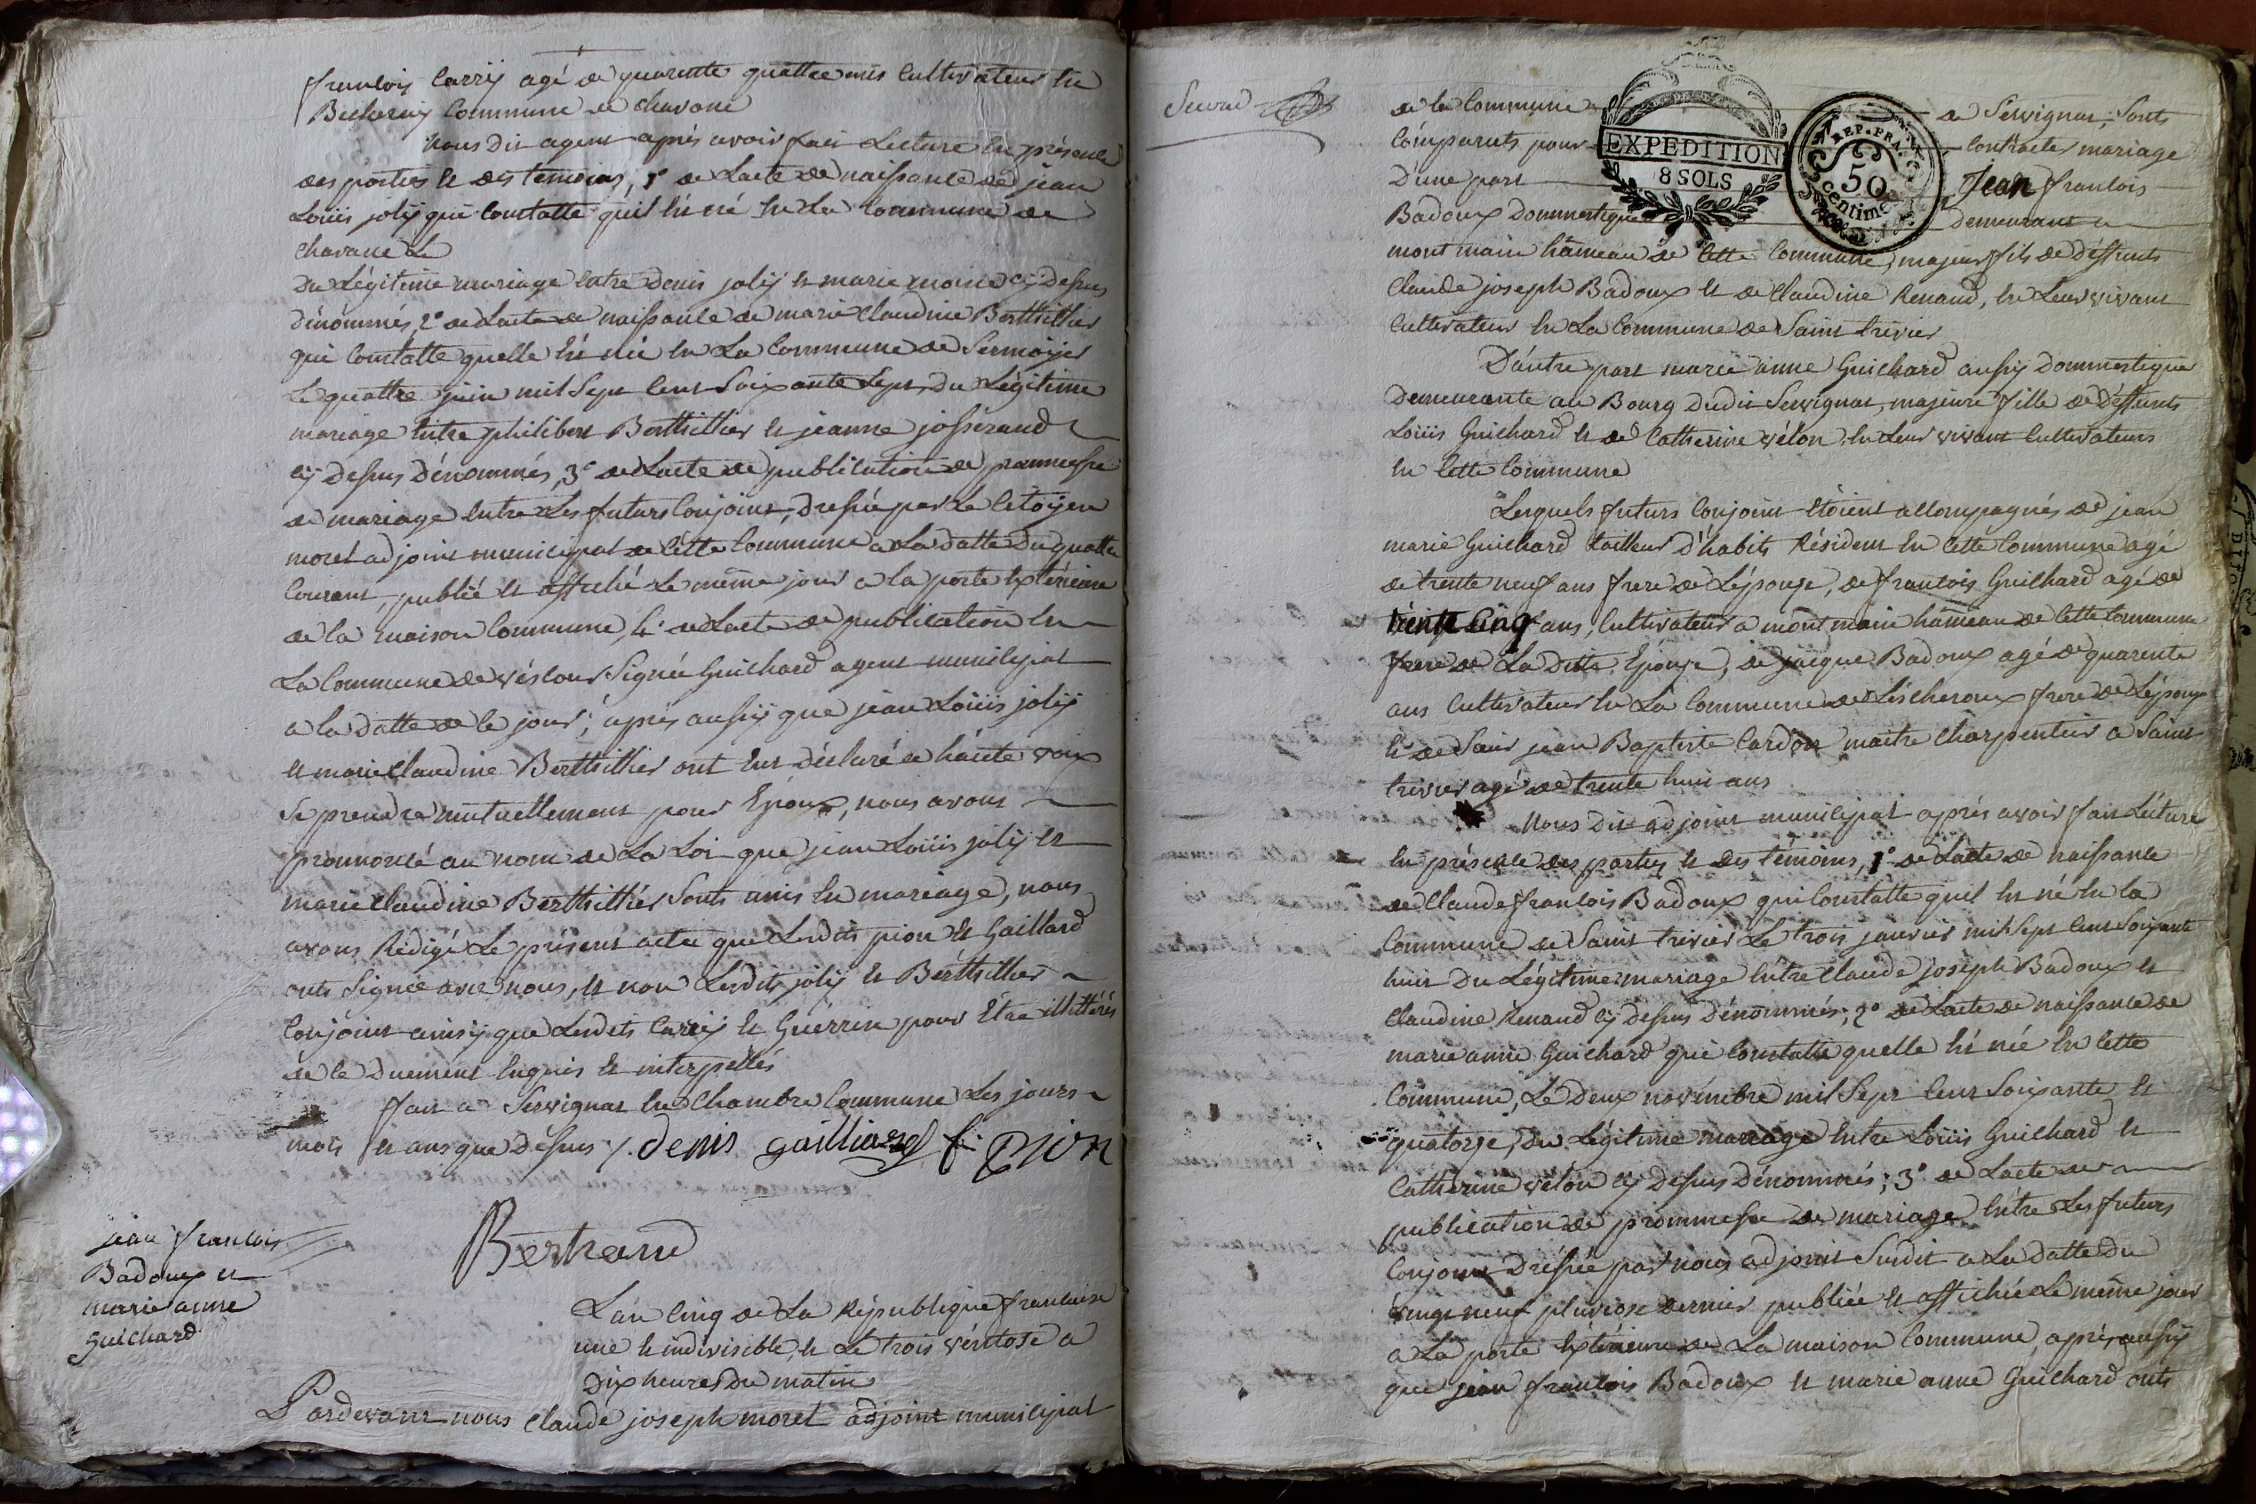 françois Carrÿ agé de quarente quattre ans Cultivateur En
Commune de chavane
nous dit agent après avoir fait Lecture En présence
des parties Et des témoins, 1° de Lacte de naissance de jean
Loüis jolÿ qui Constatte quil Est né En La Commune de
chavane Le
du Légitime mariage Entre Denis jolÿ Et marie moine cÿ dessus
dénommés, 2° de Lacte de naissance de marie Claudine Berthillier
qui Constatte quelle Est née En La Commune de Sermoÿer
Le quattre juin mil Sept Cent Soixante Sept, du Légitime
mariage Entre philibert Berthillier Et jeanne josserand
cÿ dessus Dénommés, 3° de Lacte de publication de prommesse
de mariage Entre Les futurs Conjoint, dressée par Le Citoÿen
moret adjoint municipal de Cette Commune a La datte du quattre
Courant, publié Et affiché Le même jour a la porte Extérieure
de la maison Commune, 4° de Lacte de publication En
La Commune de véscour Signée Guichard agent municipal
a la datte de Ce jour; après aussÿ que jean Loüis jolÿ
Et marie Claudine Berthillier ont Eut déclaré a haute voix
Se prendre mutuellement pour Epoux, nous avons
prononcé au nom de La Loi que jean Loüis jolÿ Et
marie Claudine Berthillier Sont unis En mariage, nous
avons Rédigé Le présent acte que Lesdits pion Et Gaillard
onts Signée avec nous, Et non Lesdits jolÿ Et Berthillier
Conjoint ainsÿ que Lesdits Carrÿ Et Guerrin pour Etre illittérés
de Ce duement Enquis Et interpellés
fait a Servignat En Chambre Commune Les jours
mois Et ans que Dessus /. denis gailliard f. pion
Bertrand
jean françois
Badoux Et
marie anne
Guichard
Lan Cinq de La République francaise
une Et indivisible, Et Le trois véntose a
Dix heures du matin
Pardevant nous Claude joseph moret adjoint municipal
de la Commune de Servignat, Sonts
Comparuts pour Contracter mariage
Dune part Jean francois
Badoux Dommestique Demeurant a
montmain hâmeau de Cette Commune, majeur fils de déffunts
Claude joseph Badoux Et de Claudine Renaud, En Leur vivant
Cultivateur En La Commune de Saint trivier
Dautre part marie anne Guichard aussÿ Dommestique
Demeurante au Bourg dudit Servignat, majeure fille de Déffunts
Loüis Guichard Et de Catherine vélon En Leur vivant Cultivateurs
En Cette Commune
Lesquels futurs Conjoint Etoient accompagnés de jean
marie Guichard tailleur d'habits Résident En Cette Commune agé
de trente neuf ans frere de Lépouse, de francois Guichard agé de
Cinq ans, Cultivateur a montmain hâmeau de Cette Commune
frere de La ditte Epouse, de jacque Badoux agé de quarente
ans Cultivateur En La Commune de Léscheroux frere de Lépoux
Et de Sair jean Baptiste Cardon maitre Charpentier a Saint
trivier agé de trente huit ans
Nous dit adjoint municipal après avoir fait Lécture
En présence des parties Et des témoins, 1° de Lacte de naissance
de Claude francois Badoux qui Constatte quil Est né En la
Commune de Saint trivier Le trois janvier mil Sept Cent Soixante
huit du Légitime mariage Entre Claude joseph Badoux Et
Claudine Renaud cÿ dessus Dénommés; 2° de Lacte de naissance de
marie anne Guichard qui Constatte quelle Est née En Cette
Commune, Le Deux novémbre mil Sept Cent Soixante Et
quatorze, du Légitime mariage Entre Loüis Guichard Et
Catherine vélon cÿ dessus Dénommés; 3° de Lacte de
publication de prommesse de mariage Entre Les futurs
Conjoint Dréssée par nous adjoint Susdit a La datte du
vingt neuf pluviose dernier publiée Et affichée Le même jour
a La porte Extérieure de La maison Commune, après aussÿ
que jean francois Badoux Et marie anne Guichard onts
EXPEDITION
8 SOLS
REP. FRA.
50
Centime